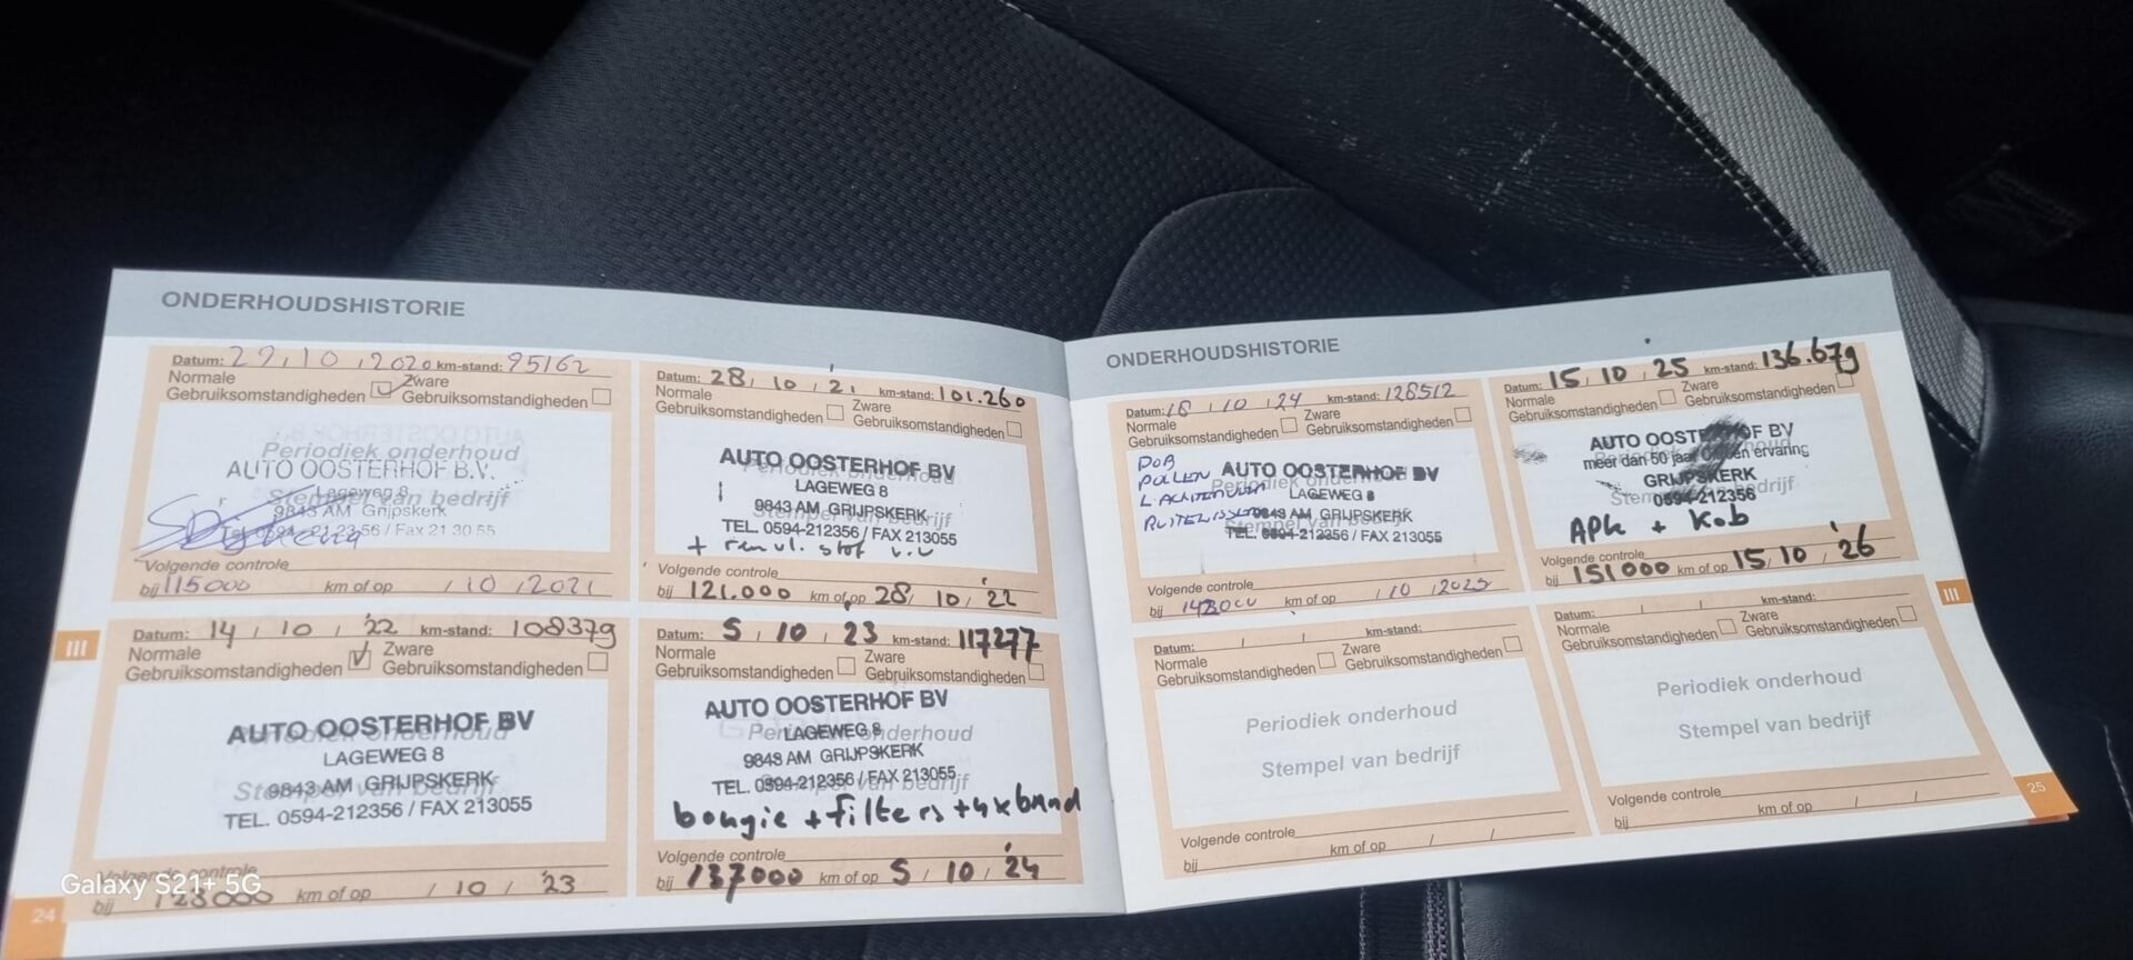 ONDERHOUDSHISTORIE
Datum: 29, 10, 2020 km-stand: 95162
Normale Zware
Gebruiksomstandigheden Gebruiksomstandigheden
Periodiek onderhoud
AUTO OOSTERHOF B.V.
Lageweg 8
Stempel van bedrijf
9843 AM Grijpskerk
Tel. 0594-21 23 56 / Fax 21 30 55
Volgende controle
bij 115000 km of op / 10 / 2021
Datum: 28, 10, 21 km-stand: 101.260
Normale Zware
Gebruiksomstandigheden Gebruiksomstandigheden
AUTO OOSTERHOF BV
LAGEWEG 8
9843 AM GRIJPSKERK
TEL. 0594-212356 / FAX 213055
+ remvl. stof
Volgende controle
bij 121.000 km of op 28, 10, '22
Datum: 14, 10, '22 km-stand: 108379
Normale Zware
Gebruiksomstandigheden Gebruiksomstandigheden
AUTO OOSTERHOF BV
LAGEWEG 8
9843 AM GRIJPSKERK
TEL. 0594-212356 / FAX 213055
Volgende controle
bij 128000 km of op / 10 / '23
Datum: 5, 10, 23 km-stand: 117277
Normale Zware
Gebruiksomstandigheden Gebruiksomstandigheden
AUTO OOSTERHOF BV
Periodiek onderhoud
LAGEWEG 8
9843 AM GRIJPSKERK
TEL. 0594-212356 / FAX 213055
bougie + filters + 4x band
Volgende controle
bij 137000 km of op 5, 10, '24
III
24
Galaxy S21+ 5G
ONDERHOUDSHISTORIE
Datum: 18, 10, 24 km-stand: 128512
Normale Zware
Gebruiksomstandigheden Gebruiksomstandigheden
POLLEN
AUTO OOSTERHOF BV
LAGEWEG 8
9843 AM GRIJPSKERK
TEL. 0594-212356 / FAX 213055
Volgende controle
bij km of op / 10 / 2025
Datum: 15, 10, 25 km-stand: 136.679
Normale Zware
Gebruiksomstandigheden Gebruiksomstandigheden
AUTO OOSTERHOF BV
meer dan 50 jaar ervaring
GRIJPSKERK
0594-212356
APK + K.o.b
Volgende controle
bij 151000 km of op 15, 10, '26
Datum: / / km-stand:
Normale Zware
Gebruiksomstandigheden Gebruiksomstandigheden
Periodiek onderhoud
Stempel van bedrijf
Volgende controle
bij km of op / /
Datum: / / km-stand:
Normale Zware
Gebruiksomstandigheden Gebruiksomstandigheden
Periodiek onderhoud
Stempel van bedrijf
Volgende controle
bij km of op / /
III
25